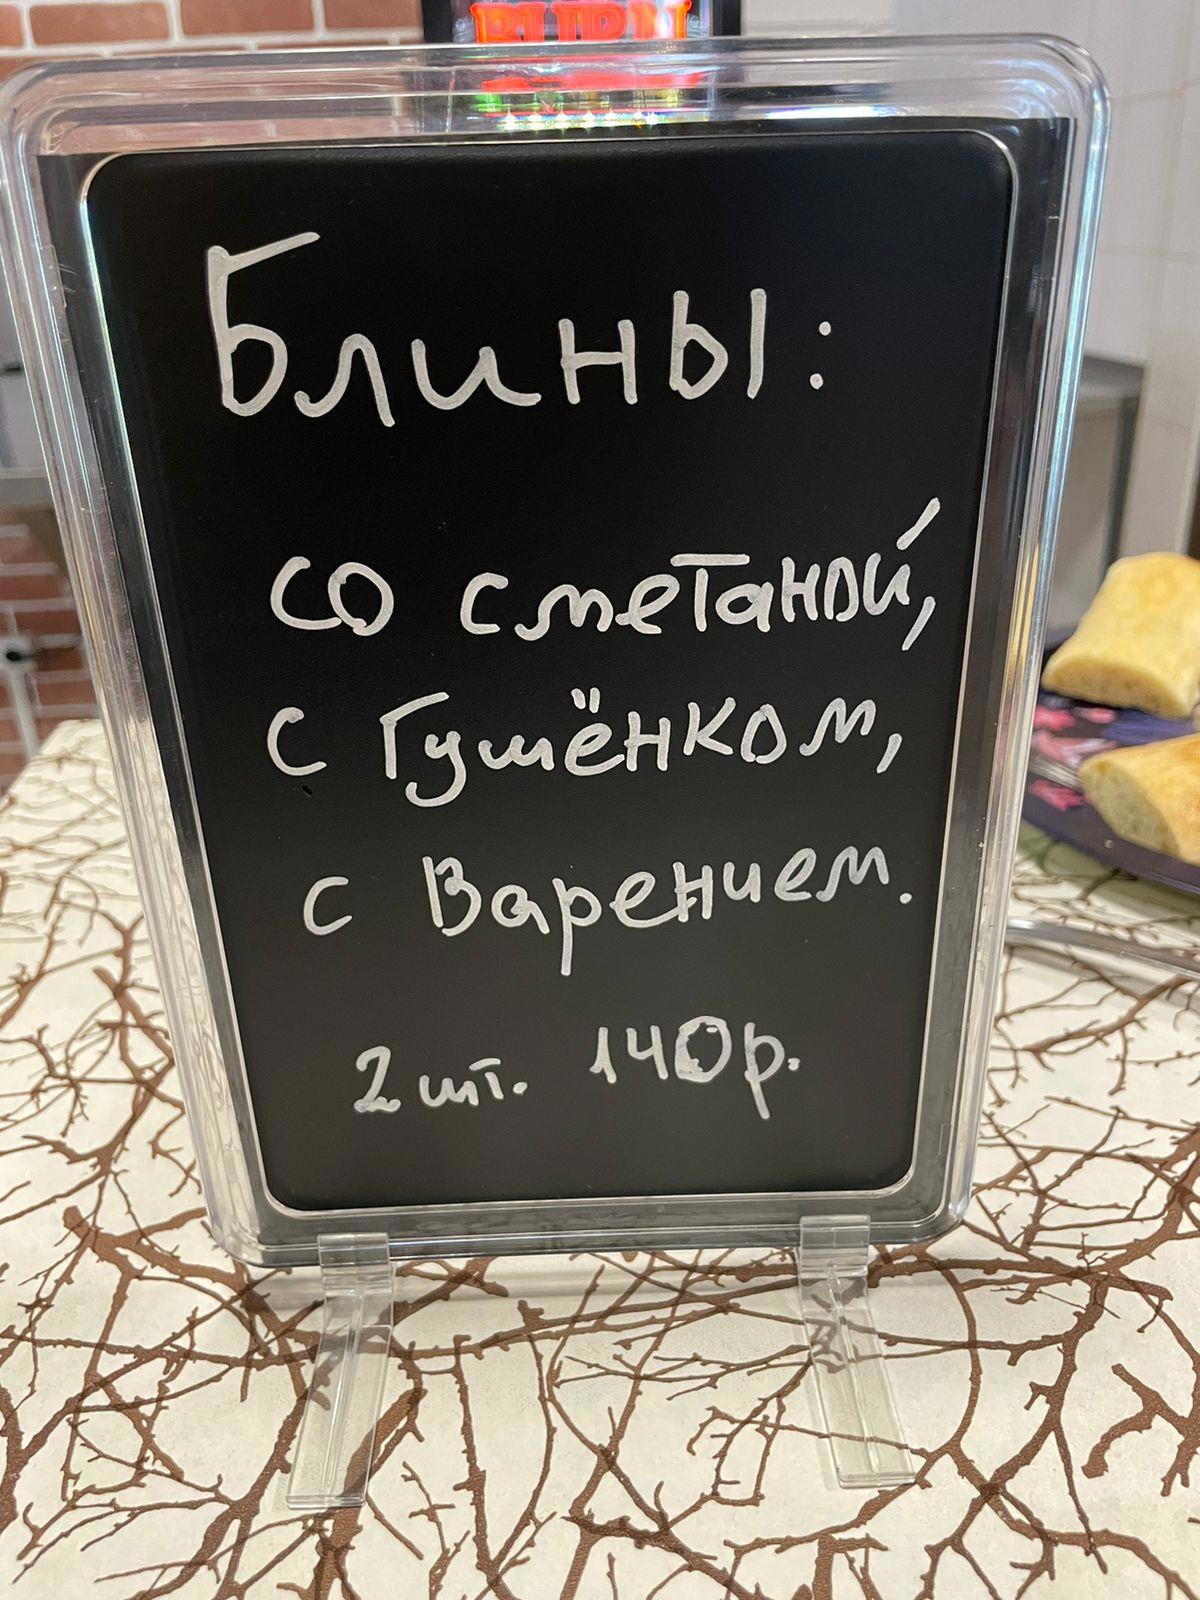 BURN
Блины:
со сметаной,
с Гушёнком,
с Варением.
2 шт. 140р.